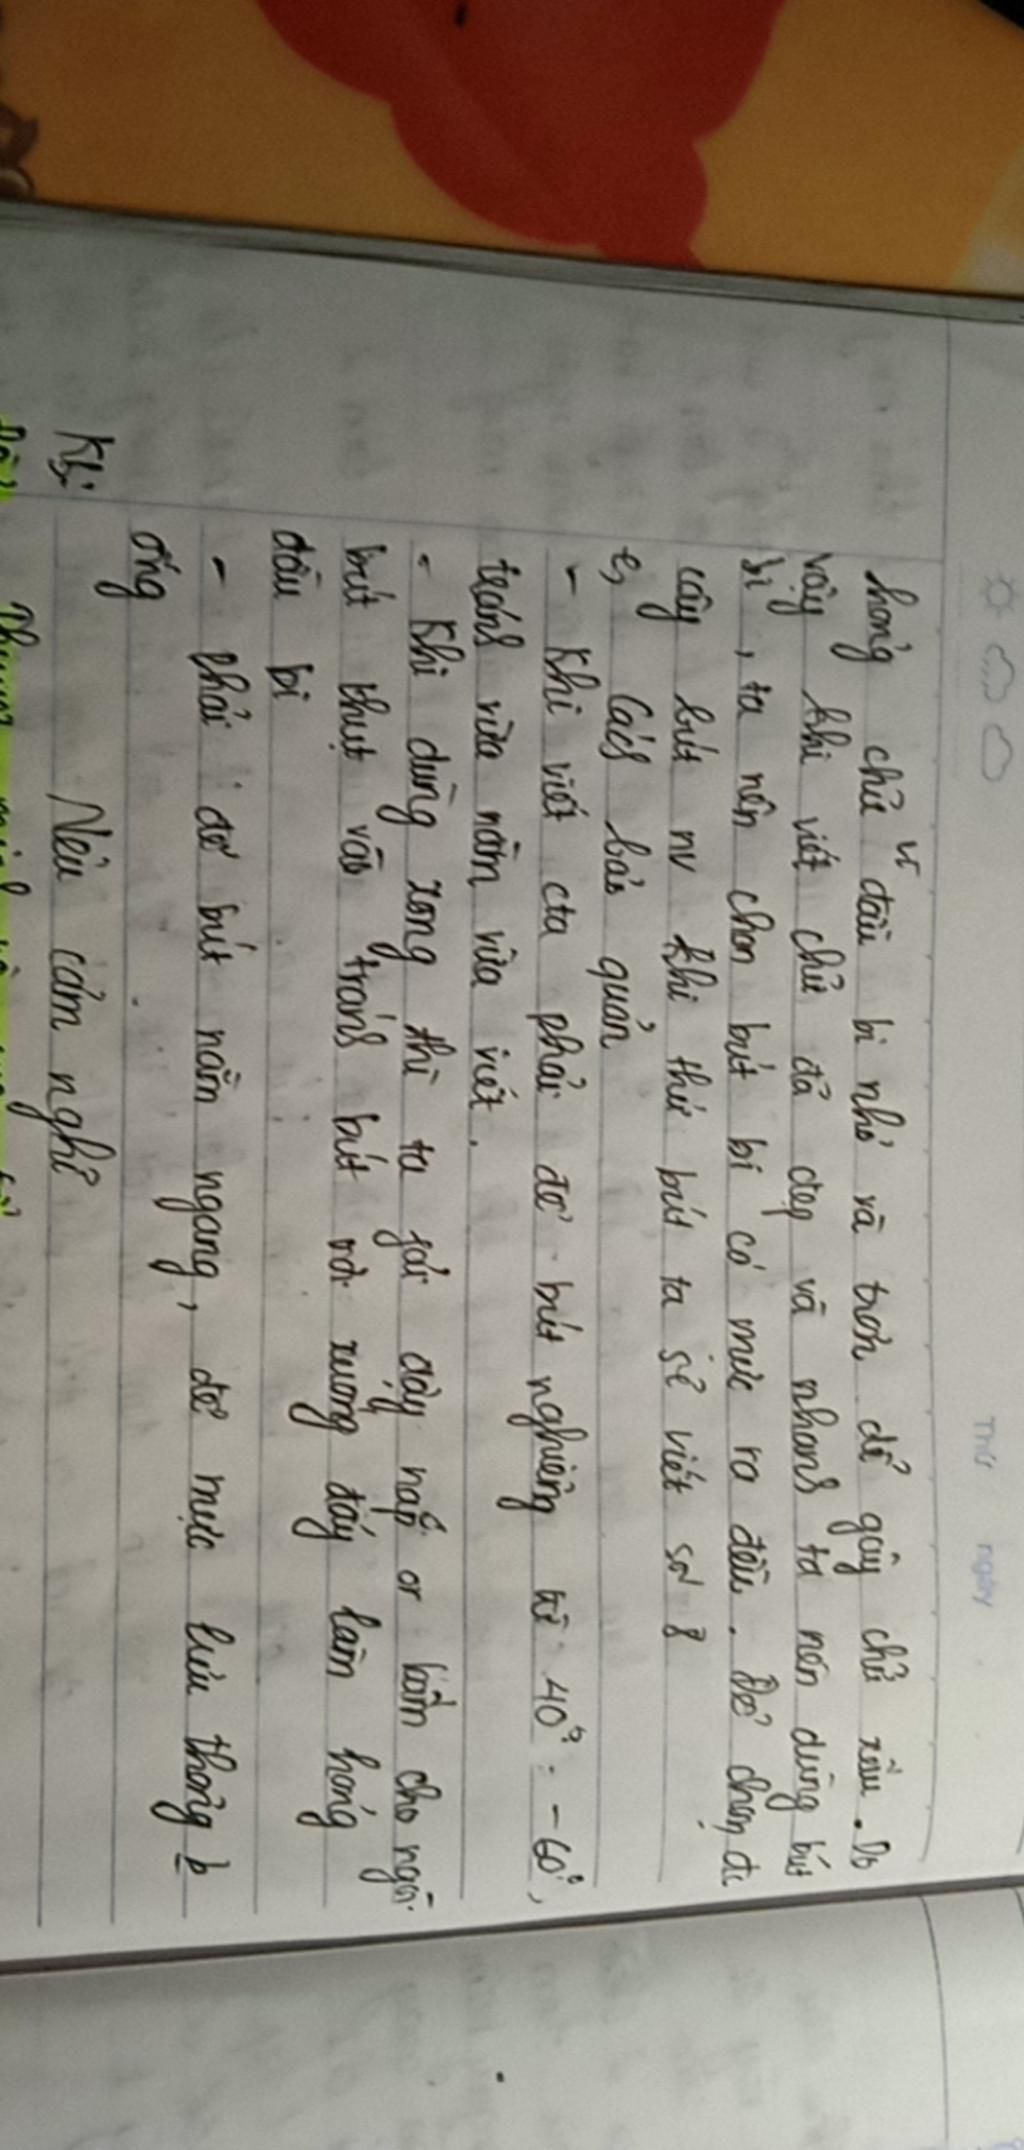 Thứ ngày
hỏng chữ vì đầu bi nhỏ và trơn dễ gây chữ xấu. Do
vậy khi viết chữ đã đẹp và nhanh ta nên dùng bút
bi, ta nên chọn bút bi có mực ra đều. Để chọn đc
cây bút nv khi thử bút ta sẽ viết số 8
e, Cách bảo quản
- Khi viết cta phải để bút nghiêng từ 40° - 60°,
tránh vừa nằm vừa viết.
- Khi dùng xong thì ta fải đậy nắp or bấm cho ngòi
bút thụt vào tránh bút rơi xuống đáy làm hỏng
đầu bi
- phải để bút nằm ngang, để mực lưu thông
ống
Nêu cảm nghĩ